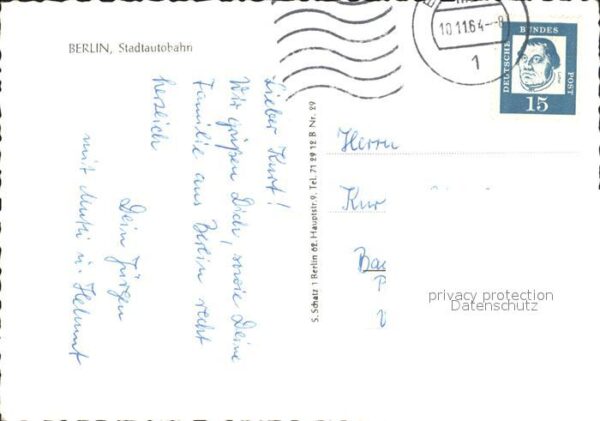 BERLIN, Stadtautobahn
10.11.64-8
1
DEUTSCHE BUNDES POST
15
Lieber Kurt!
Wir grüßen Dich, sowie Deine
Familie aus Berlin recht
herzlich
Dein Jürgen
mit Mutti u. Helmut
S. Schatz 1 Berlin 62. Hauptstr. 9. Tel. 71 29 12 B Nr. 29
Herrn
Kur
privacy protection
Datenschutz